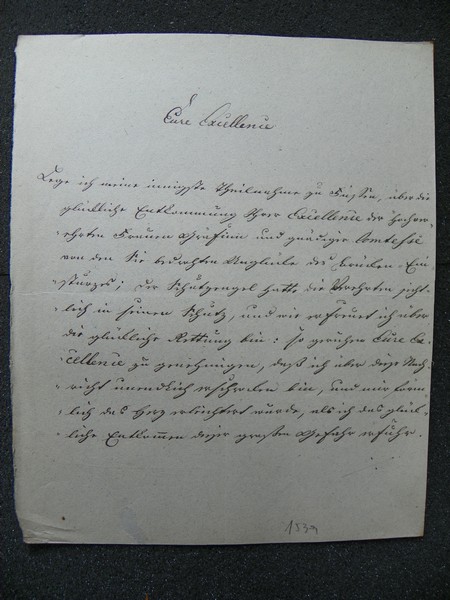 Eure Excellenze
Lege ich meine innigste Theilnahme zu Füssen, über die
glückliche Entkommung Ihrer Excellenze der Hochver-
ehrten Frauen Gräfinn und gnädigen Comtesse
von den Sie bedrohten Unglücke des Brücken-Ein-
sturzes; der Schutzengel hatte die Verehrten sicht-
lich in seinen Schutz, und wie erfreut ich über
die glückliche Rettung bin: so geruhen Eure Ex-
cellenze zu genehmigen, daß ich über diese Nach-
richt unendlich erschrocken bin, und mir förm-
lich das Herz erleichtert wurde, als ich das glück-
liche Entkommen dieser großen Gefahr erfuhr.